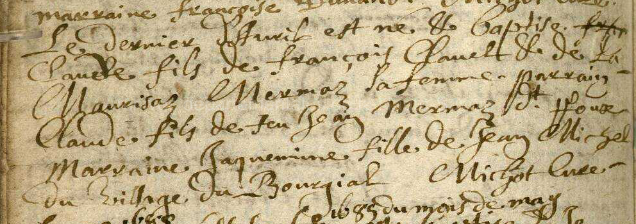 marraine françoise
Le dernier Apvril est ne & baptise
Claude fils de françois Clauet & de la
Maurisaz Mermoz sa femme parrain
Claude fils de feu Jean Mermoz dt
Marraine Jaquemine fille de Jean Michel
du village du Bourgial Michot Cure
1685 du mois de may